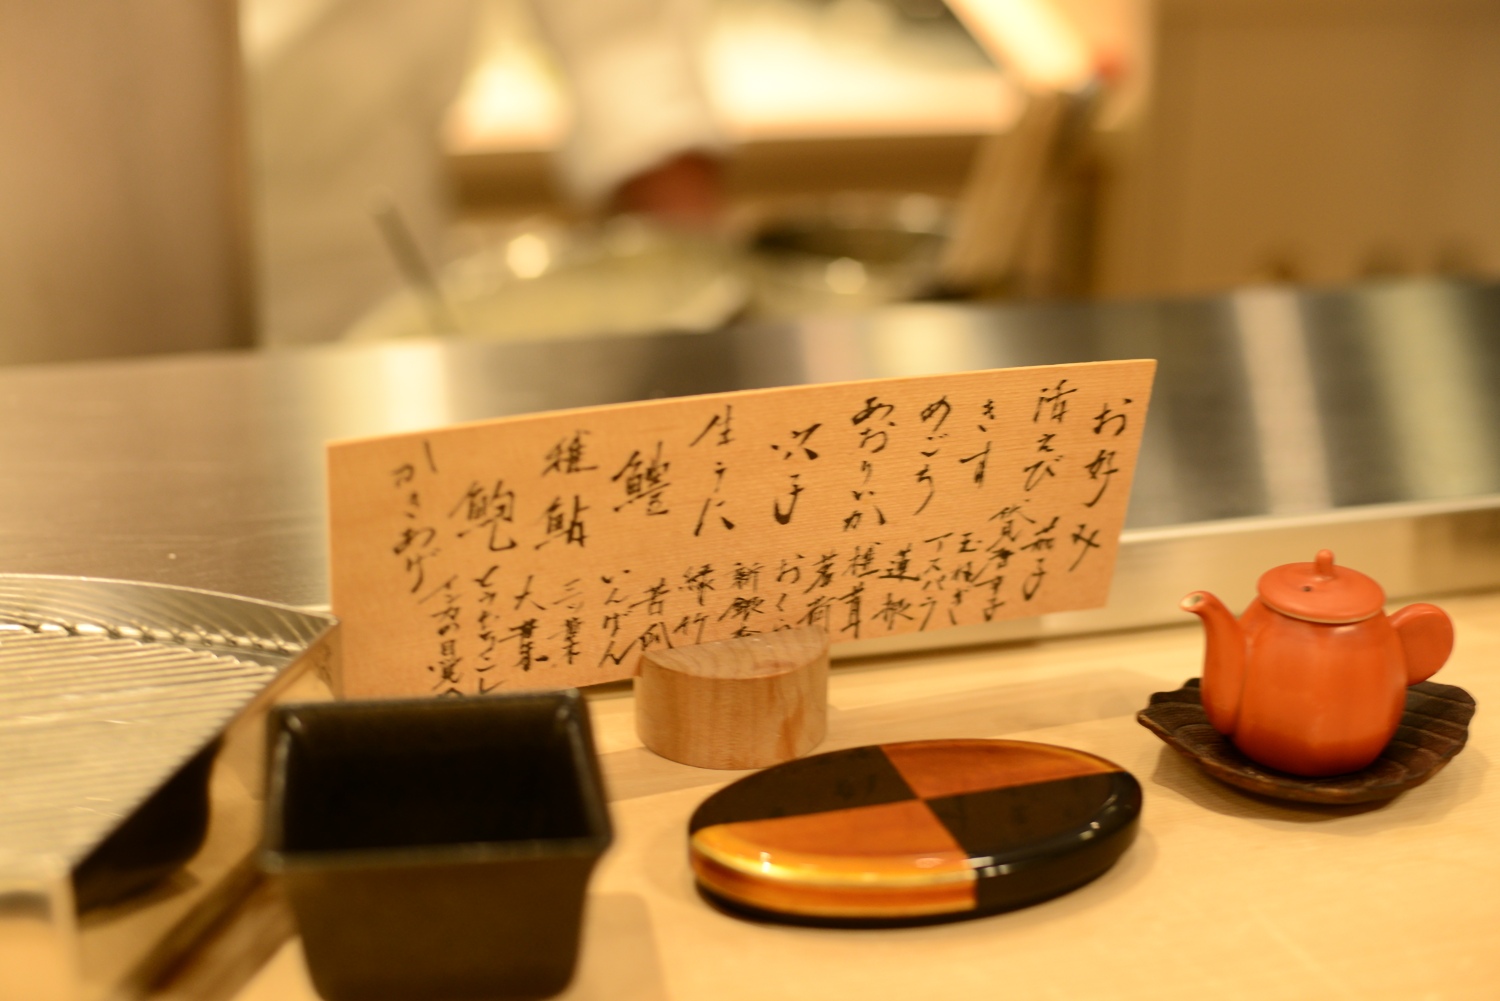 お好み
活えび
きす
めごち
あおりいか
穴子
生うに
鱧
稚鮎
鮑
かきあげ
茄子
賀茂茄子
玉ねぎ
アスパラ
蓮根
椎茸
茗荷
おくら
新銀杏
緑竹
苦瓜
いんげん
三つ葉
大葉
とうもろこし
インカの目覚め